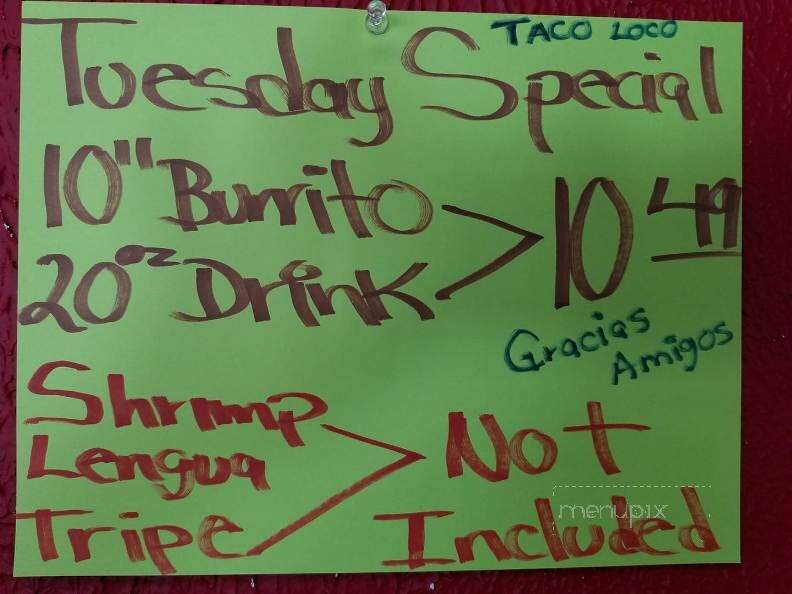 TACO LOCO
Tuesday Special
10" Burrito
20oz Drink > 10 49
Gracias
Amigos
Shrimp
Lengua > Not
Tripe Included
menupix